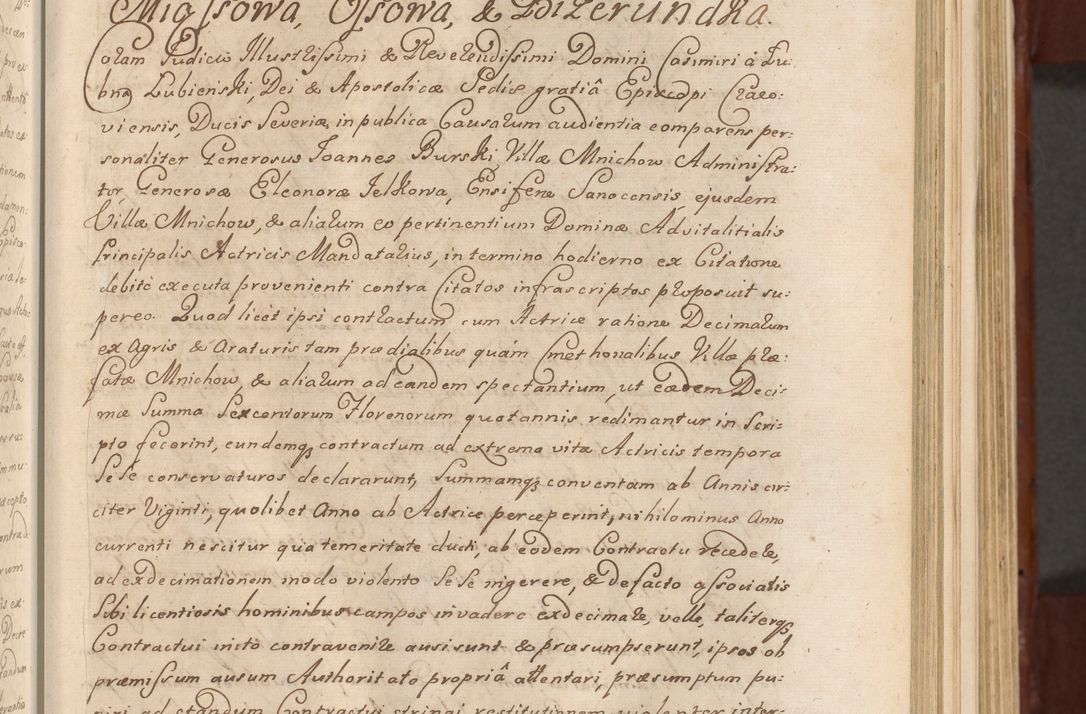 Migssowa, Ossowa, & Dizerundka.
Coram Judicio Illustrissimi & Reverendissimi Domini Casimiri á Lu:
bna Lubienski, Dei & Apostolicæ Sedis gratiâ Episcopi Craco:
viensis, Ducis Severiæ, in publica Causarum audientia comparens per:
sonaliter Generosus Joannes Burski, Villæ Mnichow Administra:
tor, Generosæ Eleonoræ Jelkowa, Ensiferæ Sanocensis, ejusdem
Villæ Mnichow, & aliarum eo pertinentium Dominæ Advitalitialis
Principalis Actricis Mandatarius, in termino hodierno ex Citatione
debitè executa provenienti contra Citatos infrascriptos proposuit su:
per eo. Quod licet ipsi contractum cum Actrice ratione Decimarum
ex Agris & Araturis tam prædialibus quám Cmethonalibus Villæ præ:
fatæ Mnichow, & aliarum ad eandem spectantium, ut eædem Deci:
mæ Summa Sexcentorum Florenorum quotannis redimantur in Scri:
pto fecerint, eundemq; contractum ad extrema vitæ Actricis tempora
Se Se conservaturos declararunt, Summamq; conventam ab Annis cir:
citer Viginti, quolibet Anno ab Actrice perceperint, nihilominus Anno
currenti nescitur qua temeritate ducti, ab eodem Contractu recedere,
ad exdecimationem modo violento Se Se ingerere, & de facto associatis
Sibi licentiosis hominibus campos invadere exdecimare, velle, taliterq;
Contractui inito contravenire ausi sunt & præsumpserunt, ipsos ob
præmissum ausum Authoritate propriâ attentari, præsumptum pu:
niri ad standum Contractui stringi restitutionem violenter inter: